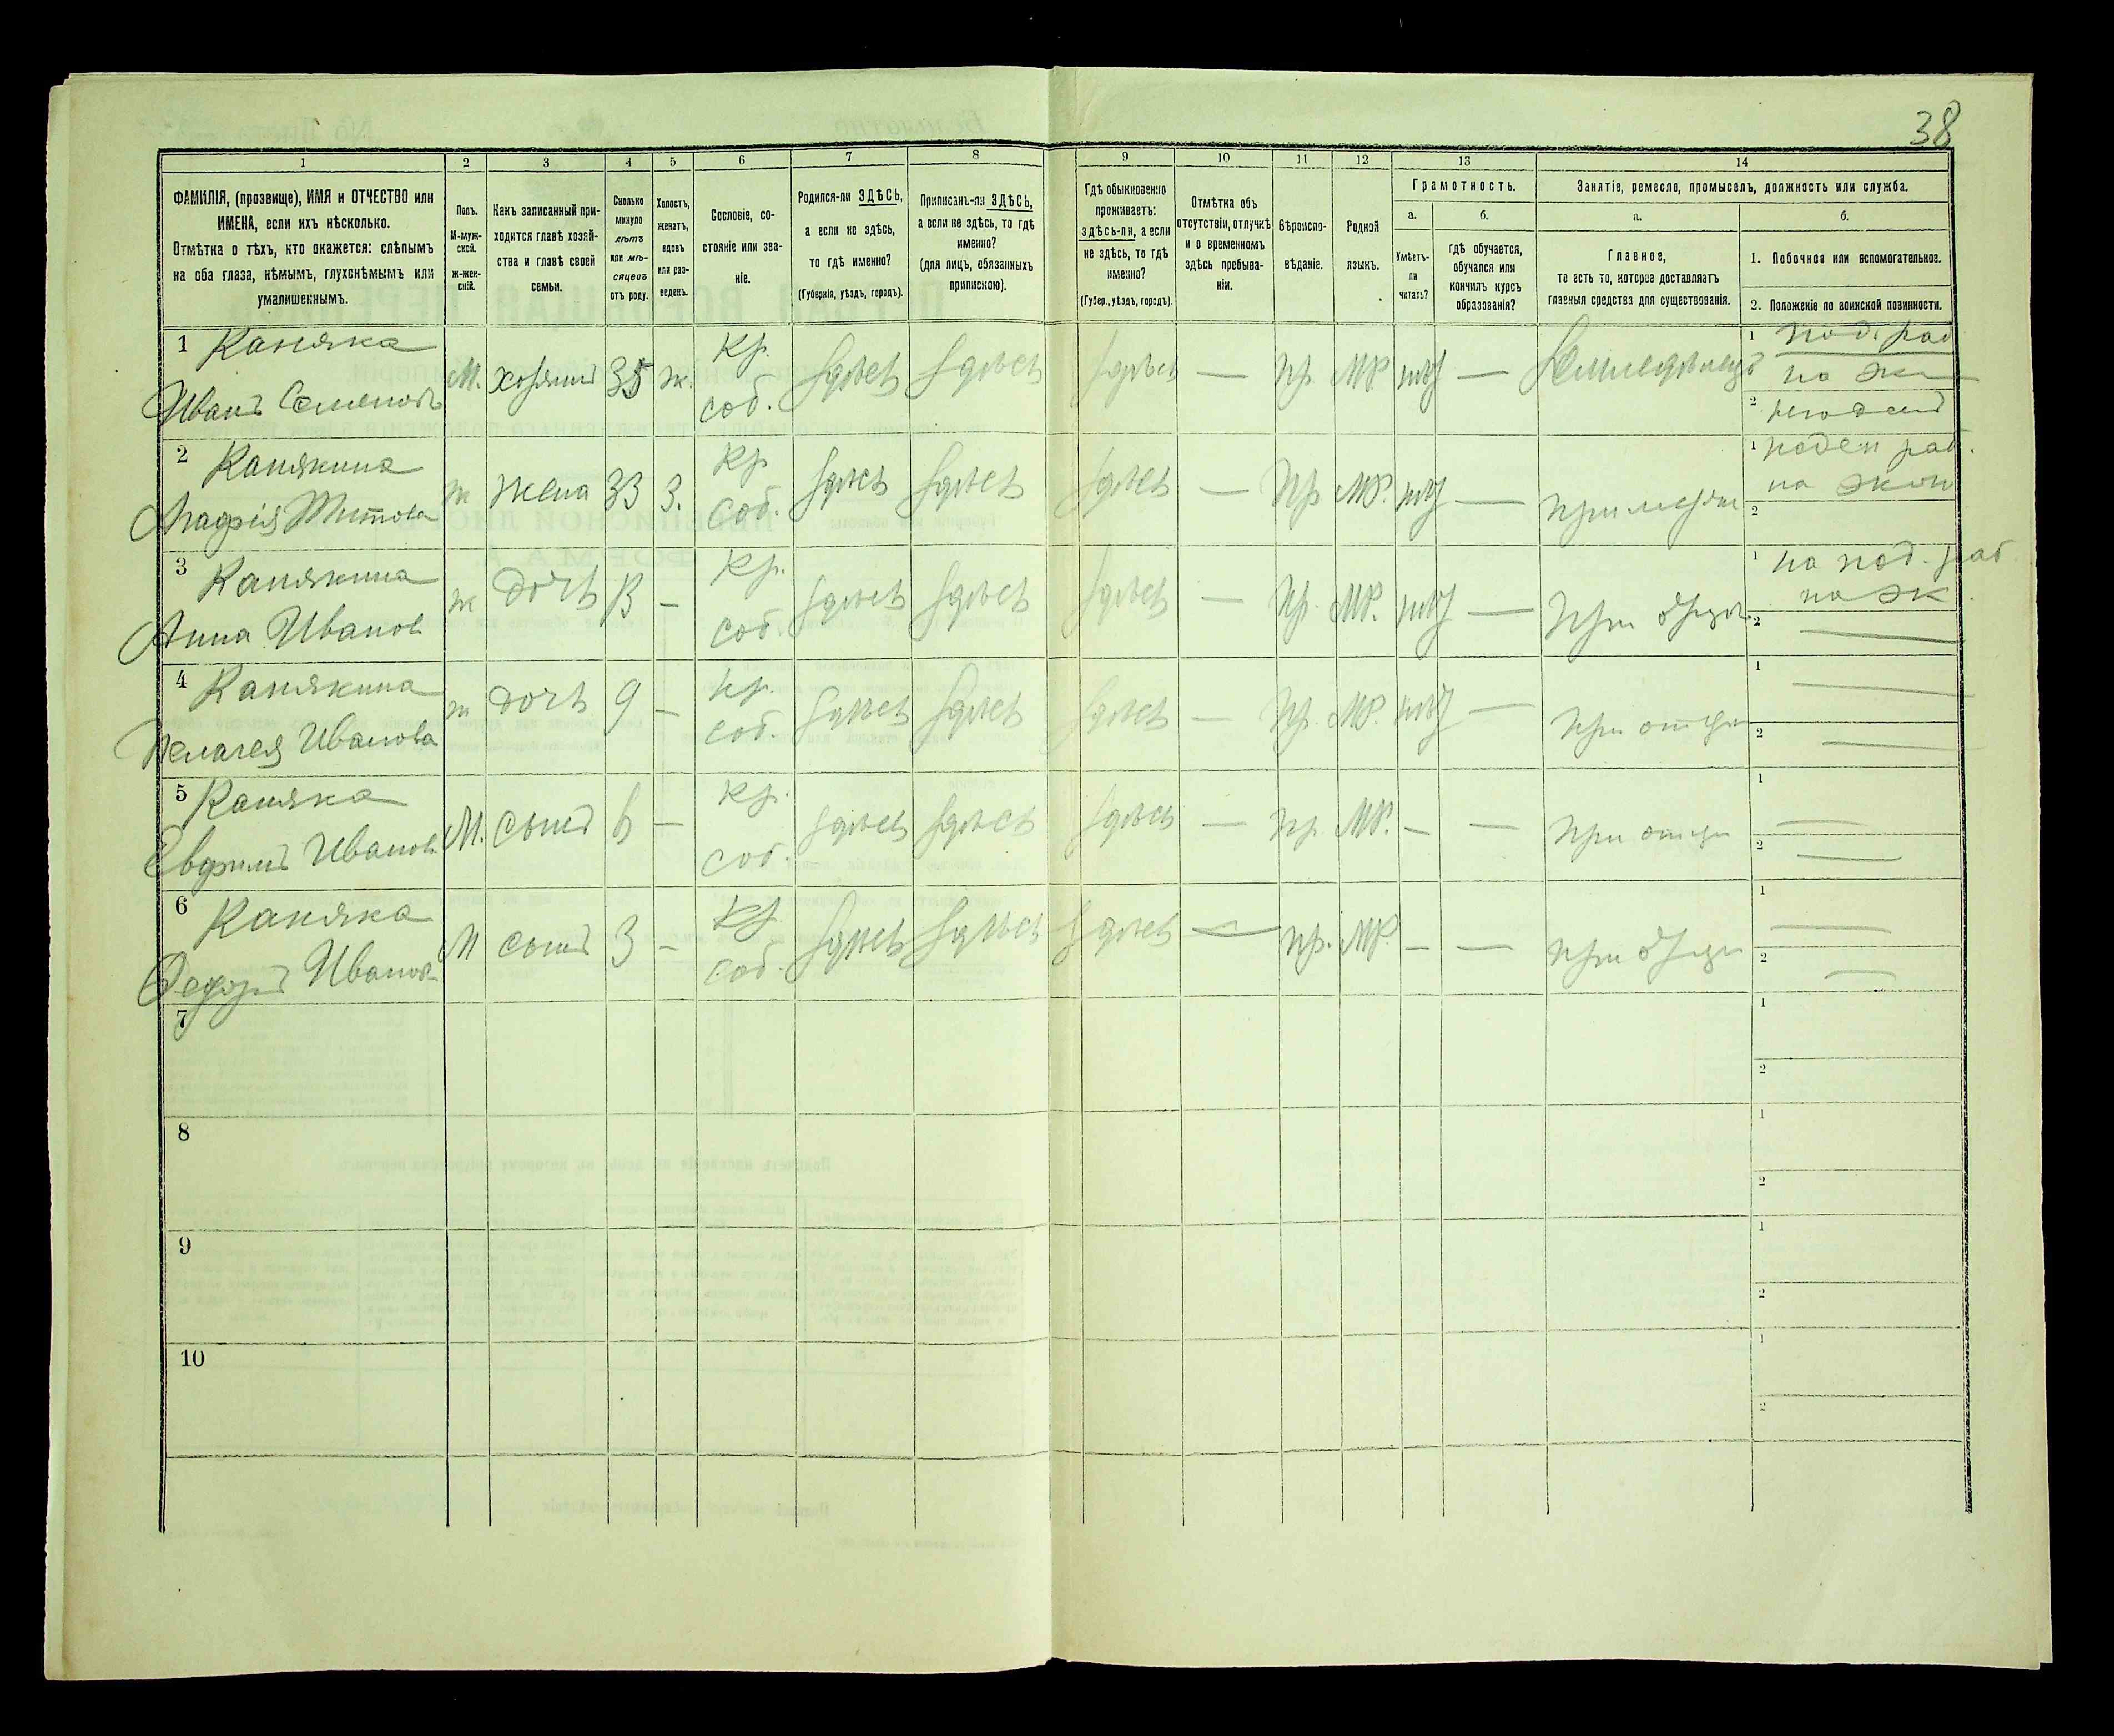 38
1 2 3 4 5 6 7 8 9 10 11 12 13 14
ФАМИЛІЯ, (прозвище), ИМЯ и ОТЧЕСТВО или
ИМЕНА, если ихъ нѣсколько.
Отмѣтка о тѣхъ, кто окажется: слѣпымъ
на оба глаза, нѣмымъ, глухонѣмымъ или
умалишеннымъ.
Полъ.
М-муж-
ской.
Ж-жен-
скій.
Какъ записанный при-
ходится главѣ хозяй-
ства и главѣ своей
семьи.
Сколько
минуло
лѣтъ
или мѣ-
сяцевъ
отъ роду.
Холостъ,
женатъ,
вдовъ
или раз-
веденъ.
Сословіе, со-
стояніе или зва-
ніе.
Родился-ли ЗДѢСЬ,
а если не здѣсь,
то гдѣ именно?
(Губернія, уѣздъ, городъ).
Приписанъ-ли ЗДѢСЬ,
а если не здѣсь, то гдѣ
именно?
(для лицъ, обязанныхъ
припискою).
Гдѣ обыкновенно
проживаетъ:
здѣсь-ли, а если
не здѣсь, то гдѣ
именно?
(Губер., уѣздъ, городъ).
Отмѣтка объ
отсутствіи, отлучкѣ
и о временномъ
здѣсь пребыва-
ніи.
Вѣроиспо-
вѣданіе.
Родной
языкъ.
Грамотность.
а. б.
Умѣетъ-
ли
читать?
гдѣ обучается,
обучался или
кончилъ курсъ
образованія?
Занятіе, ремесло, промыселъ, должность или служба.
а. б.
Главное,
то есть то, которое доставляетъ
главныя средства для существованія.
1. Побочное или вспомогательное.
2. Положеніе по воинской повинности.
1 Каняка
Иванъ Семеновъ
М. хозяинъ 35 ж. Кр. соб. здѣсь здѣсь здѣсь — Пр. МР нѣт — Земледѣлецъ
1 под. раб
на эк
2
2 Канякина
Агафія Титова
ж жена 33 З. Кр. соб. здѣсь здѣсь здѣсь — Пр МР. нѣт — при муже
1 поден раб.
на экон
2
3 Канякина
Анна Иванов
ж дочь 13 — Кр. соб. здѣсь здѣсь здѣсь — Пр. МР. нѣт — При отце
1 на под. раб
на эк
2
4 Канякина
Пелагея Иванова
ж дочь 9 — Кр. соб. здѣсь здѣсь здѣсь — Пр. МР. нѣт — При отце
1
2
5 Каняка
Евфимъ Иванов
М. сынъ 6 — Кр. соб. здѣсь здѣсь здѣсь — Пр. МР. — — При отце
1
2
6 Каняка
Федоръ Иванов
М сынъ 3 — Кр. соб. здѣсь здѣсь здѣсь — Пр. МР. — — при отце
1
2
7
1
2
8
1
2
9
1
2
10
1
2